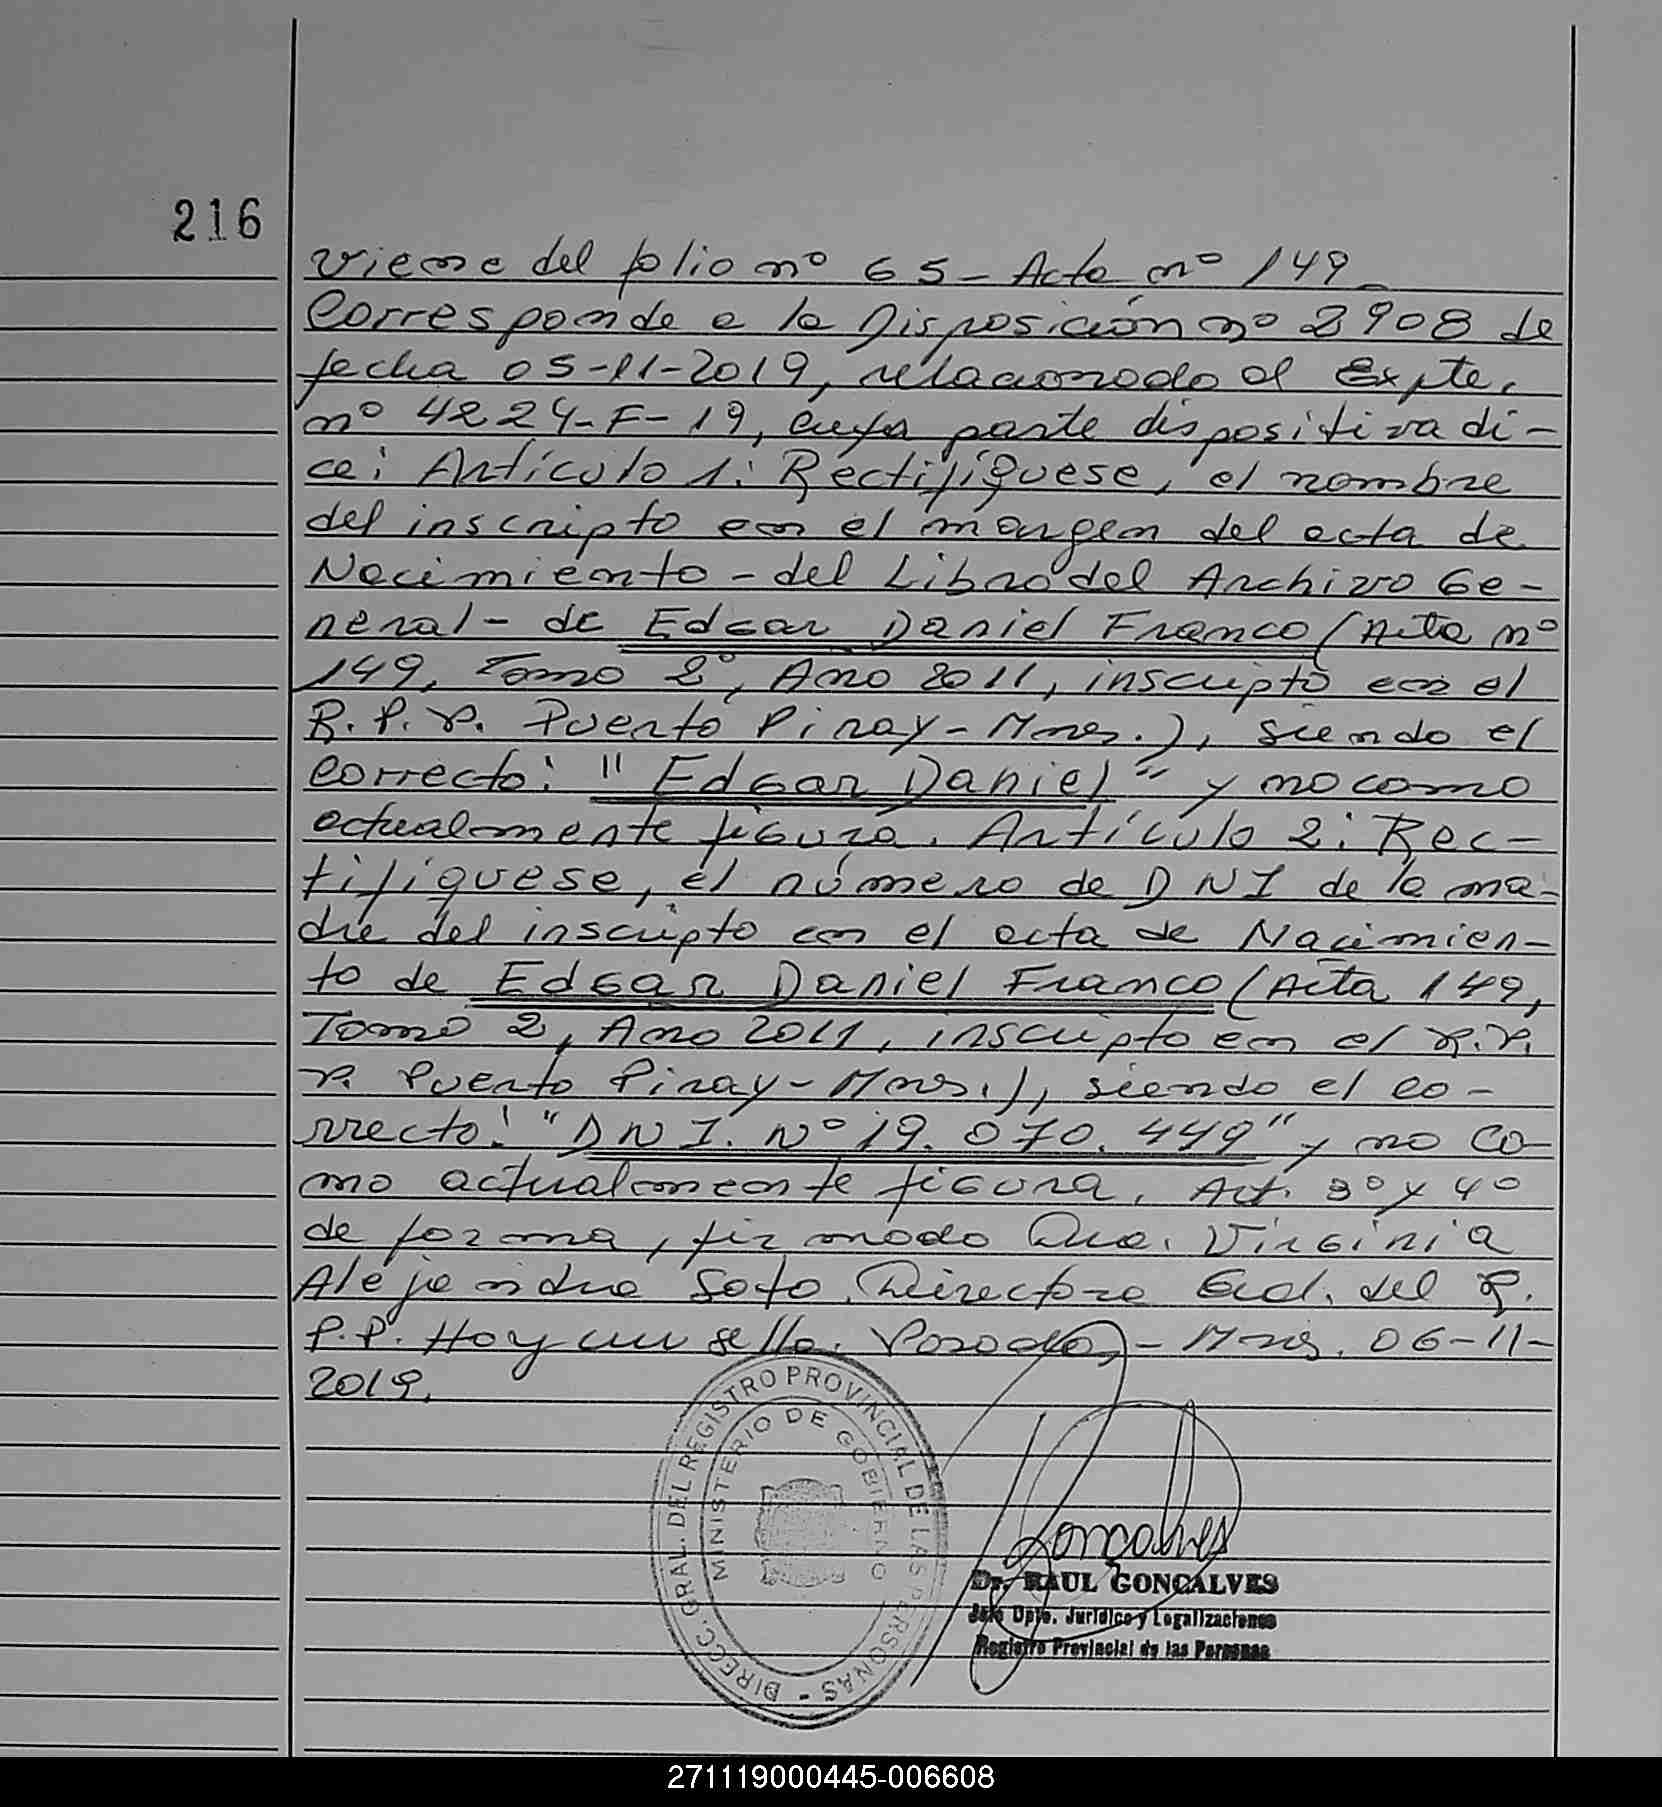 216
viene del folio nº 65 - Acta nº 149.
Corresponde a la Disposición nº 2908 de
fecha 05-11-2019, relacionado al Expte.
nº 4224-F-19, cuya parte dispositiva di-
ce: Artículo 1: Rectifíquese, el nombre
del inscripto en el margen del acta de
Nacimiento - del Libro del Archivo Ge-
neral - de Edgar Daniel Franco (Acta nº
149, Tomo 2º, Año 2011, inscripto en el
R.P.P. Puerto Piray - Mnes.), siendo el
correcto: "Edgar Daniel" y no como
actualmente figura. Artículo 2: Rec-
tifíquese, el número de DNI de la ma-
dre del inscripto en el acta de Nacimien-
to de Edgar Daniel Franco (Acta 149,
Tomo 2, Año 2011, inscripto en el R.P.
P. Puerto Piray - Mnes.), siendo el co-
rrecto: "DNI. Nº 19.070.449" y no co-
mo actualmente figura. Art. 3º y 4º
de forma, firmado Dra. Virginia
Alejandra Soto. Directora Gral. del R.
P.P. Hay un sello. Posadas, - Mnes. 06-11-
2019.
DIRECC. GRAL. DEL REGISTRO PROVINCIAL DE LAS PERSONAS -
MINISTERIO DE GOBIERNO
Goncalves
Dr. RAUL GONCALVES
Jefe Dpto. Jurídico y Legalizaciones
Registro Provincial de las Personas
271119000445-006608